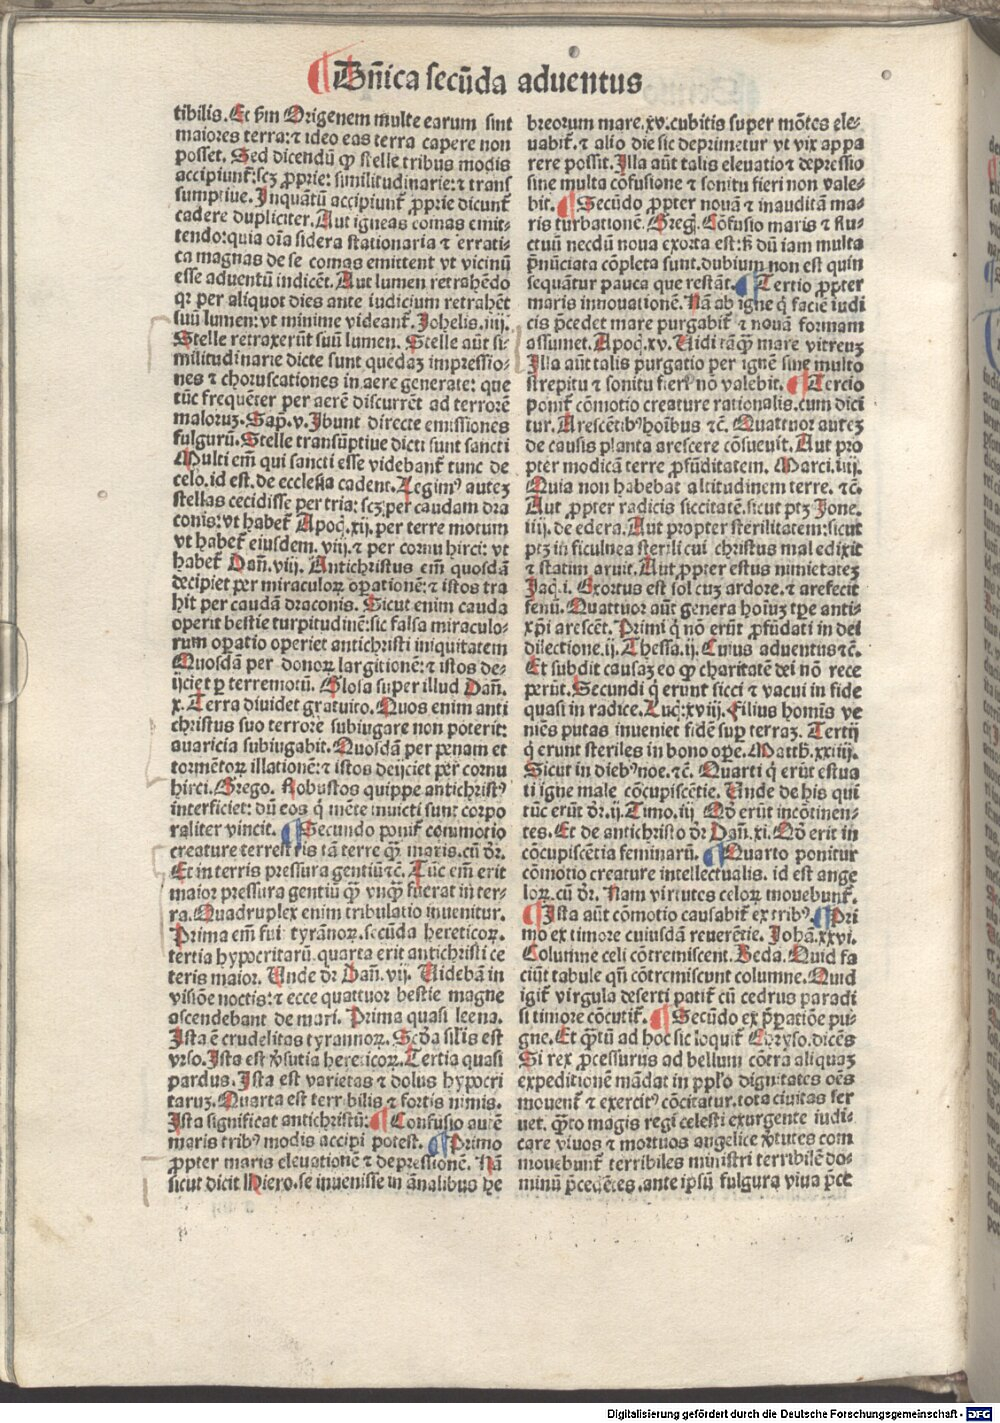 ¶ Dn̄ica secūda aduentus
tibilis. Et ẜm Origenem multe earum sint
maiores terra: ⁊ ideo eas terra capere non
posset. Sed dicendū ꝙ stelle tribus modis
accipiunt᷑: scꝫ ꝓprie: similitudinarie: ⁊ trans
sumptiue. Inquātū accipiunt᷑ ꝓprie dicunt᷑
cadere dupliciter. Aut igneas comas emit-
tendo: quia oīa sidera stationaria ⁊ errati-
ca magnas de se comas emittent vt vicinū
esse aduentū indicēt. Aut lumen retrahēdo
qꝛ per aliquot dies ante iudicium retrahēt
suū lumen: vt minime videant᷑. Johelis. iiij.
Stelle retraxerūt suū lumen. Stelle aūt si-
militudinarie dicte sunt quedaꝫ impressio-
nes ⁊ choruscationes in aere generate: que
tūc frequēter per aerē discurrēt ad terrorē
maloruꝫ. Sap. v. Ibunt directe emissiones
fulgurū. Stelle transūptiue dicti sunt sancti
Multi em̄ qui sancti esse videbant᷑ tunc de
celo. id est. de ecclesia cadent. Legimꝰ auteꝫ
stellas cecidisse per tria: scꝫ per caudam dra
conis: vt habet᷑ Apoc. xij. per terre motum
vt habet᷑ eiusdem. viij. ⁊ per cornu hirci: vt
habet᷑ Dan̄. viij. Antichristus em̄ quosdā
decipiet per miraculoꝝ oꝑationē: ⁊ istos tra
hit per caudā draconis. Sicut enim cauda
operit bestie turpitudinē: sic falsa miraculo-
rum oꝑatio operiet antichristi iniquitatem
Quosdā per donoꝝ largitionē: ⁊ istos de-
ijciet ꝑ terremotū. Glosa super illud Dan̄.
x. Terra diuidet gratuito. Quos enim anti
christus suo terrore subiugare non poterit:
auaricia subiugabit. Quosdā per penam et
tormētoꝝ illationē: ⁊ istos deijciet per cornu
hirci. Grego. Robustos quippe antichristꝰ
interficiet: dū eos q̇ mēte inuicti sunt corpo
raliter vincit. ¶ Secundo ponit᷑ commotio
creature terrestris tā terre qꝫ̄ maris. cū dr̄.
Et in terris pressura gentiū ⁊c̄. Tūc em̄ erit
maior pressura gentiū qꝫ̄ vnqꝫ̄ fuerat in ter-
ra. Quadruplex enim tribulatio inuenitur.
Prima em̄ fuit tyrānoꝝ. secūda hereticoꝝ.
tertia hypocritarū. quarta erit antichristi ce
teris maior. Unde dr̄ Dan̄. vij. Uidebā in
visiōe noctis: ⁊ ecce quattuor bestie magne
ascendebant de mari. Prima quasi leena.
Ista ē crudelitas tyrannoꝝ. Scd̄a sil̄is est
vrso. Ista est v̓sutia hereticoꝝ. Tertia quasi
pardus. Ista est varietas ⁊ dolus hypocri
taruꝫ. Quarta est terribilis ⁊ fortis nimis.
Ista significat antichristū: ¶ Confusio autē
maris tribꝰ modis accipi potest. ¶ Primo
ꝓpter maris eleuationē ⁊ depressionē. Nā
sicut dicit Hiero. se inuenisse in ānalibus he
breorum mare. xv. cubitis super mōtes ele-
uabit᷑. ⁊ alio die sic deprimetur vt vix appa
rere possit. Illa aūt talis eleuatio ⁊ depressio
sine multa cōfusione ⁊ sonitu fieri non vale-
bit. ¶ Secūdo ꝓpter nouā ⁊ inauditā ma-
ris turbationē. Greg. Cōfusio maris ⁊ flu-
ctuū necdū noua exorta est: ẜꝫ dū iam multa
p̄nūciata cōpleta sunt. dubium non est quin
sequātur pauca que restāt. ¶ Tertio ꝓpter
maris innouationē. Nā ab igne q̇ faciē iudi
cis p̄cedet mare purgabit᷑ ⁊ nouā formam
assumet. Apoc. xv. Uidi tāqꝫ̄ mare vitreuꝫ
Illa aūt talis purgatio per ignē sine multo
strepitu ⁊ sonitu fieri nō valebit. ¶ Tercio
ponit᷑ cōmotio creature rationalis. cum dici
tur. Arescētibꝰ hoībus ⁊c̄. Quattuor auteꝫ
de causis planta arescere cōsueuit. Aut pro
pter modicā terre ꝓfūditatem. Marci. iiij.
Quia non habebat altitudinem terre. ⁊c̄.
Aut ꝓpter radicis siccitatē. sicut ptꝫ Jone.
iiij. de edera. Aut propter sterilitatem: sicut
ptꝫ in ficulnea sterili cui christus maledixit
⁊ statim aruit. Aut ꝓpter estus nimietateꝫ
Jac. i. Exortus est sol cuꝫ ardore. ⁊ arefecit
fenū. Quattuor aūt genera hoīuꝫ tp̄e anti-
xp̄i arescēt. Primi q̇ nō erūt ꝓfūdati in dei
dilectione. ij. Thessa. ij. Cuius aduentus ⁊c̄.
Et subdit causaꝫ eo ꝙ charitatē dei nō rece
perūt. Secundi q̇ erunt sicci ⁊ vacui in fide
quasi in radice. Luc. xviij. Filius hominis ve
niēs putas inueniet fidē suꝑ terraꝫ. Tertij
q̇ erunt steriles in bono oꝑe. Matth. xxiiij.
Sicut in diebꝰ noe. ⁊c̄. Quarti q̇ erūt estua
ti igne male cōcupiscētie. Unde de his qui
tūc erūt dr̄. ij. Timo. iij. Qd̄ erūt incōtinen-
tes. Et de antichristo dr̄ Dan̄. xi. Qd̄ erit in
cōcupiscētia feminarū. ¶ Quarto ponitur
cōmotio creature intellectualis. id est ange
loꝝ. cū dr̄. Nam virtutes celoꝝ mouebunt᷑.
¶ Ista aūt cōmotio causabit᷑ ex tribꝰ. ¶ Pri
mo ex timore cuiusdā reuerētie. Johā. xxvi.
Columne celi cōtremiscent. Beda. Quid fa
ciūt tabule qn̄ cōtremiscunt columne. Quid
igit᷑ virgula deserti patit᷑ cū cedrus paradi
si timore cōcutit᷑. ¶ Secūdo ex p̄paratiōe pu-
gne. Et qꝫ̄tū ad hoc sic loquit᷑ Chryso. dicēs
Si rex ꝓcessurus ad bellum cōtra aliquaꝫ
expeditionē mādat in ppl̄o dignitates oēs
mouent᷑ ⁊ exercitꝰ cōcitatur. tota ciuitas fer
uet. qꝫ̄to magis regi celesti exurgente iudi-
care viuos ⁊ mortuos angelice v̓tutes com
mouebunt᷑ terribiles ministri terribilē do-
minū p̄cedētes. ante ip̄sū fulgura viua p̄ce
Digitalisierung gefördert durch die Deutsche Forschungsgemeinschaft - DFG